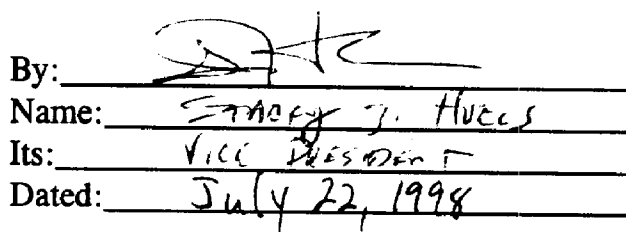 By:
Name: Stacey J. Huels
Its: Vice President
Dated: July 22, 1998